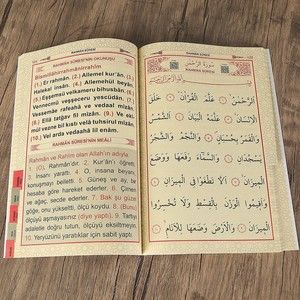 RAHMÂN SÛRESİ
RAHMÂN SÛRESİ'NİN OKUNUŞU
Bismillâhirrahmânirrahîm
(1.) Er rahmân. (2.) Allemel kur'ân. (3.)
Halekal insân. (4.) Allemehül beyân.
(5.) Eşşemsü velkameru bihusbân. (6.)
Vennecmü veşşeceru yescüdân. (7.)
Vessemâe rafeahâ ve vedaal mîzân.
(8.) Ellâ tatğav fil mîzân. (9.) Ve ekî-
mul vezne bil kıstı velâ tuhsirul mîzân.
(10.) Vel arda vedaahâ lil enâm.
RAHMÂN SÛRESİ'NİN MEÂLİ
Rahmân ve Rahîm olan Allah'ın adıyla.
1. (O), Rahmân'dır. 2. Kur'an'ı öğretti.
3. İnsanı yarattı. 4. O, insana beyanı,
konuşmayı belletti. 5. Güneş ve ay, bir
hesaba göre hareket ederler. 6. Çimen
ve ağaç, secde ederler. 7. Bak şu güzel
göğe, onu yükseltti, ölçü koydu. 8. (Bunu)
ölçüyü aşmayasınız (diye yaptı). 9. Tartıyı
adaletle doğru tutun, ölçüyü eksiltmeyin.
10. Yeryüzünü yaratıklar için sabit yaptı.
RAHMÂN SÛRESİ
سُورَةُ الرَّحْمٰنِ
RAHMÂN SÛRESİ
بِسْمِ اللّٰهِ الرَّحْمٰنِ الرَّحِيمِ
اَلرَّحْمٰنُ ۝ عَلَّمَ الْقُرْاٰنَ ۝ خَلَقَ
الْاِنْسَانَ ۝ عَلَّمَهُ الْبَيَانَ ۝ اَلشَّمْسُ
وَالْقَمَرُ بِحُسْبَانٍ ۝ وَالنَّجْمُ وَالشَّجَرُ
يَسْجُدَانِ ۝ وَالسَّمَاءَ رَفَعَهَا وَوَضَعَ
الْمِيزَانَ ۝ اَلَّا تَطْغَوْا فِي الْمِيزَانِ
۝ وَاَقِيمُوا الْوَزْنَ بِالْقِسْطِ وَلَا تُخْسِرُوا
الْمِيزَانَ ۝ وَالْاَرْضَ وَضَعَهَا لِلْاَنَامِ ۝